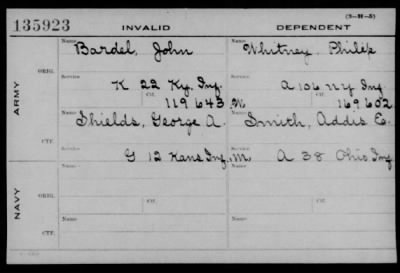 135923 INVALID DEPENDENT (3-H-5)
Name Bardel, John Name Whitney, Philip
ORIG.
Service K 22 Ky. Inf. Service A 106 NY Inf
ARMY
Ctf. 119643 M. Ctf. 169602
Name Shields, George A. Name Smith, Addis E.
CTF.
Service G 12 Kans Inf. M Service A 38 Ohio Inf
Name Name
ORIG.
Service Service
NAVY
Ctf. Ctf.
Name Name
CTF.
Service Service